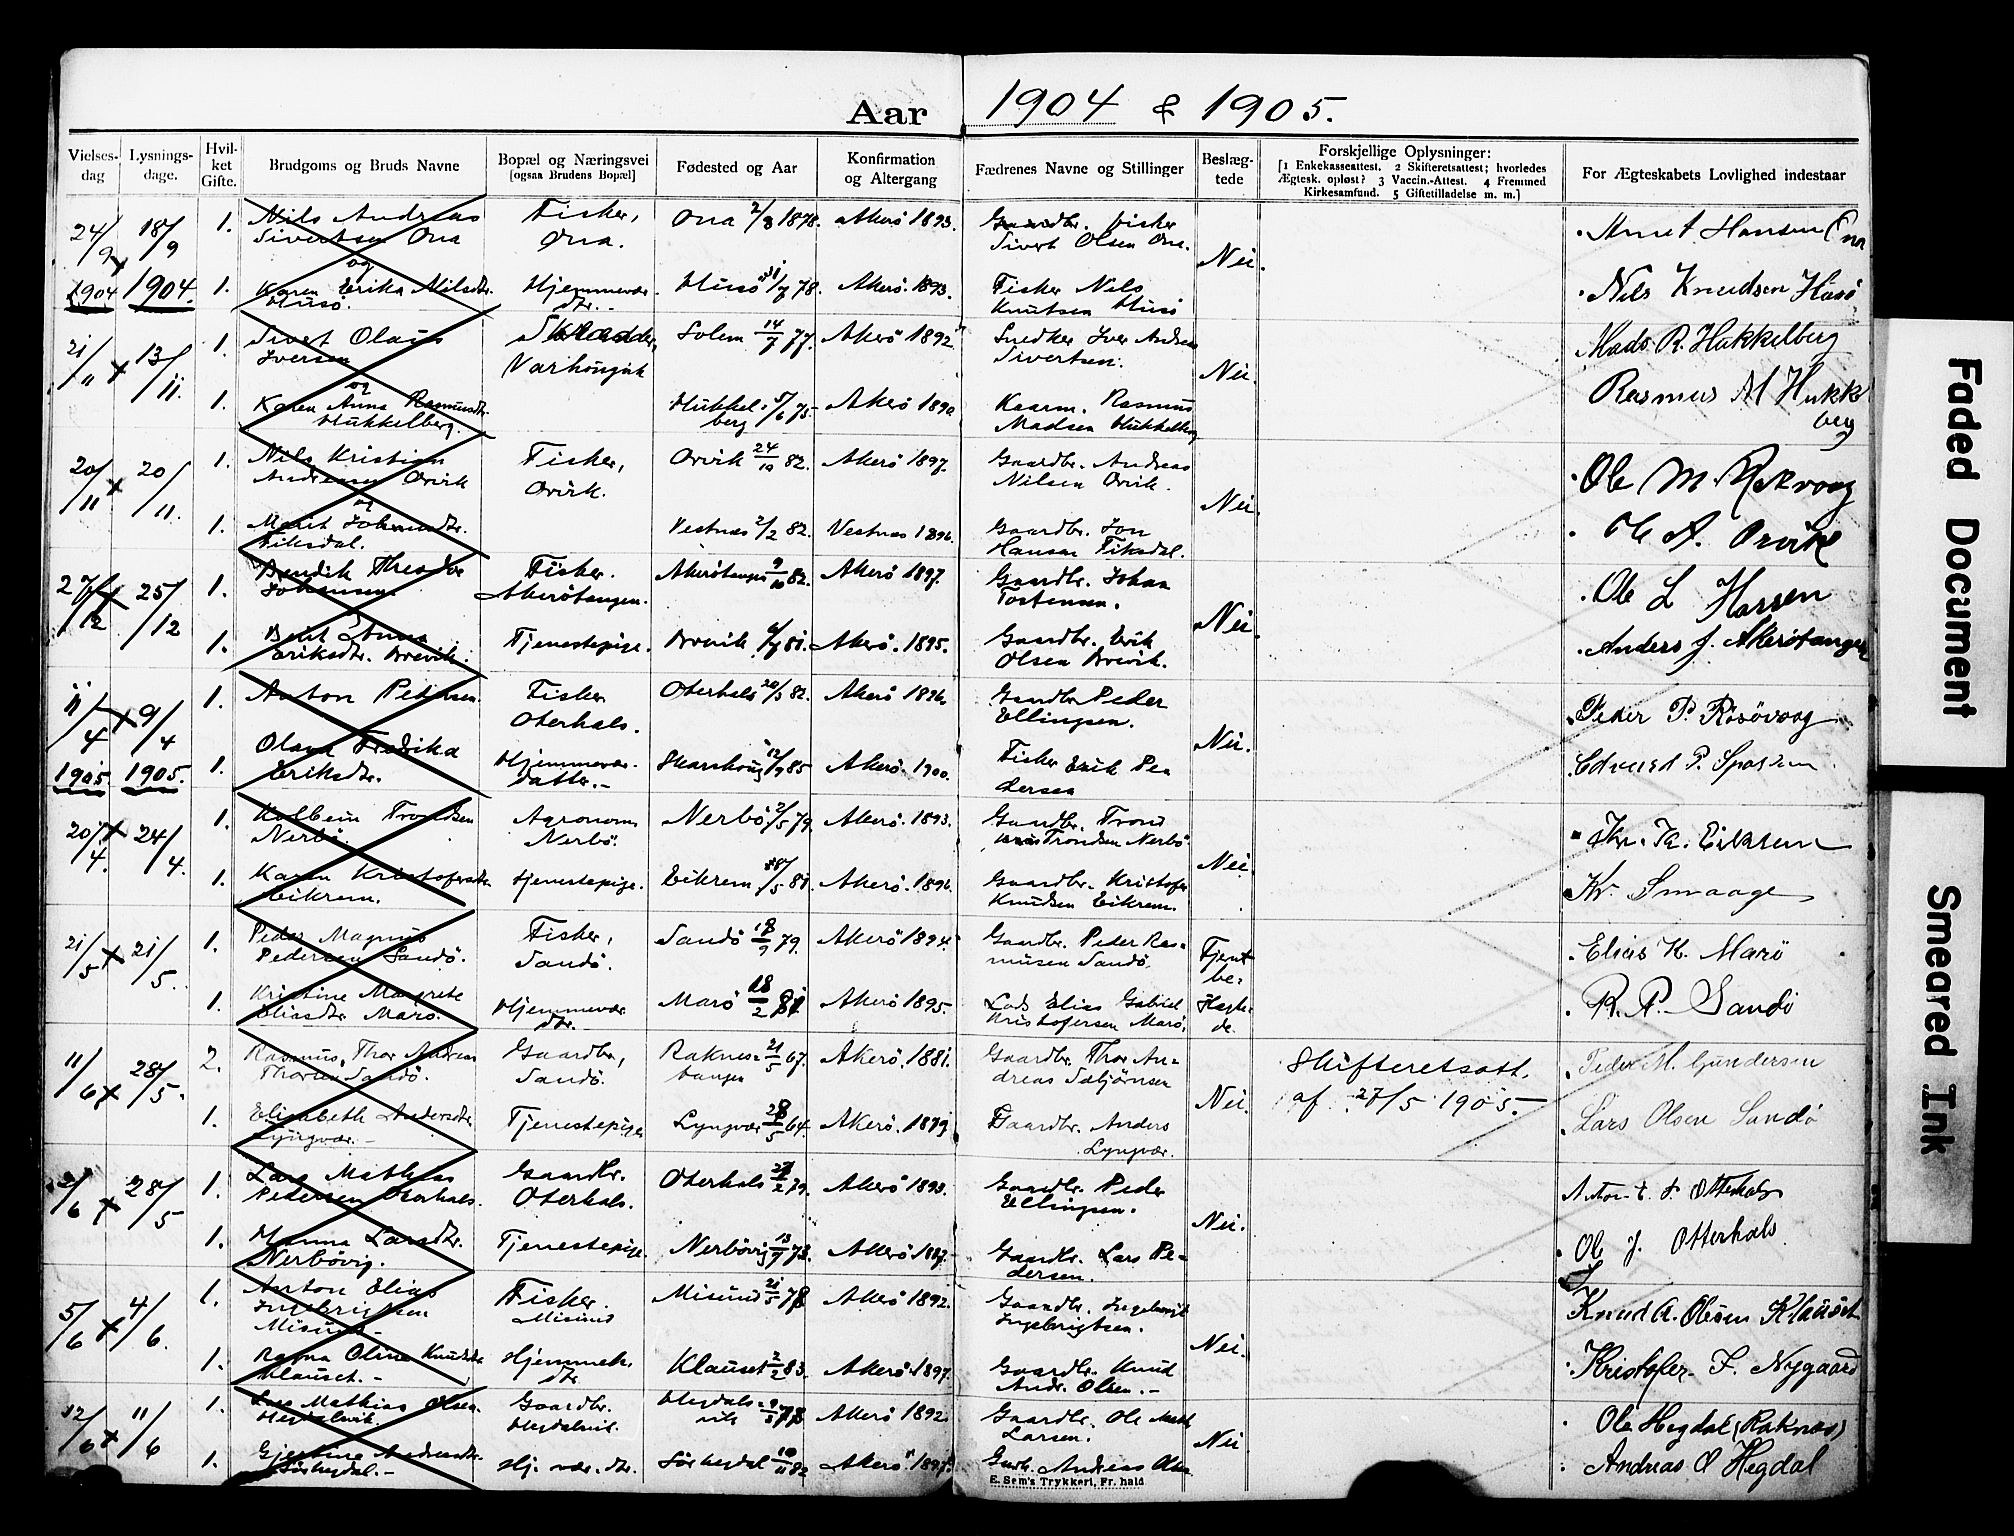 Aar 1904 & 1905.
Vielses-dag Lysnings-dage. Hvil-ket Gifte. Brudgoms og Bruds Navne Bopæl og Næringsvei [ogsaa Brudens Bopæl] Fødested og Aar Konfirmation og Altergang Fædrenes Navne og Stillinger Beslæg-tede Forskjellige Oplysninger: [1 Enkekasseattest. 2 Skifteretsattest; hvorledes Ægtesk. opløst? 3 Vaccin.-Attest. 4 Fremmed Kirkesamfund. 5 Giftetilladelse m. m.] For Ægteskabets Lovlighed indestaar
24/9 18/9 1. Nils Andreas Fisker, Ona 2/8 1878. Akerö 1893. Gaardbr. Fisker
Sivertsen Ona Ona. Sivert Olsen Ona. Nei.
og
1904 1904. 1. Karen Erika Nilsdtr. Hjemmevær. Husö 78. Akerö 1893. Fisker Nils Nils Knudsen Husö
Husö. dtr. Knutsen Husö
21/11 13/11. 1. Sivert Olaus Solem 14/7 77. Akerö 1892. Snedker Iver Andreas Mads R. Hukkelberg
Iversen Sivertsen. Nei.
og
1. Karen Anna Rasmusdtr. Hukkel- 5/6 75. Akerö 1890 Kaarm. Rasmus Rasmus M Hukkel
Hukkelberg. berg Madsen Hukkelberg berg
20/11 20/11. 1. Nils Kristian Fisker, Orvik 24/10 82. Akerö 1897. Gaardbr. Andreas Ole M. Rakvaag
Andreassen Orvik Orvik. Nilsen Orvik. Nei.
og
1. Marit Johansdtr. Vestnæs 2/2 82. Vestnæs 1896. Gaardbr. Jon Ole A. Orvik
Fiksdal. Hansen Fiksdal.
27/12 25/12 1. Bendik Theodor Fisker. Akerötangen 9/10 82. Akerö 1897. Gaardbr. Johan Ole L Hansen
Johansen Akerötangen. Tostensen. Nei.
1. Berit Anna Tjenestepige. Brevik 81. Akerö. 1895. Gaardbr. Erik Anders J. Akerötangen
Eriksdtr. Brevik. Olsen Brevik.
11/4 9/4 1. Anton Pedersen Fisker Oterhals 20/3 82. Akerö 1896. Gaardbr Peder Peder P. Rösövaag
Oterhals. Ellingsen. Nei.
1905 1905. 1. Olava Fredrika Hjemmevær. Skarshaug 12/9 85 Akerö. 1900. Fisker Erik Pe- Edvard P.
Eriksdtr. datter. dersen
20/4. 24/4. 1. Kolbein Trondsen Agronom Nerbö 2/5 79. Akerö. 1893. Gaardbr. Trond Kr. K. Eikrem
Nerbö. Nerbö. Trondsen Nerbö Nei.
1. Karen Kristofersdtr. Tjenestepige. Eikrem 81. Akerö. 1896. Gaardbr. Kristofer Kr. Smaage
Eikrem. Knudsen Eikrem.
21/5 21/5. 1. Peder Magnus Fisker, Sandö 18/9 79. Akerö 1894. Gaardbr. Peder Ras- Fjernt Elias K. Marö
Pedersen Sandö. Sandö. musen Sandö. be-
1. Kristine Margrete Hjemmevær Marö 18/2 81. Akerö 1895. Lods Elias Gabriel slægte- R. P. Sandö
Eliasdtr Marö. dtr. Kristofersen Marö. de.
11/6 28/5. 2. Rasmus Thor Andreas Gaardbr, Raknes- 21/5 67. Akerö. 1881. Gaardbr. Thor An- Skifteretsatt. Peder M. Gundersen
Thorsen Sandö. Sandö. tangen dreas Sæbjörnsen Nei. af 27/5 1905.
1. Elisabeth Andersdtr Tjenestepige Lyngvær 28/5 64. Akerö. 1879 Gaardbr. Anders Lars Olsen Sandö
Lyngvær. Lyngvær.
2/6 28/5 1. Lars Mathias Gaardbr. Oterhals 79. Akerö 1893. Gaardbr. Peder Anton E. P. Otterhals
Pedersen Oterhals. Oterhals. Ellingsen. Nei.
1. Hanna Larsdtr. Tjenestepige. Nerbövig 13/9 73. Akerö 1887. Gaardbr. Lars Pe- Ole J. Otterhals
Nerbövig. dersen.
5/6 4/6. 1. Anton Elias Fisker. Misund 21/5 78 Akerö 1892. Gaardbr. Ingebrigt Knud A. Olsen Klauset
Ingebrigtsen Misund Ingebrigtsen.
Misund Nei.
1. Ragna Oline Knutsdtr Hjemmev. Klauset 2/2 83. Akerö. 1897. Gaardbr. Knud Kristofer F. Nygaard
Klauset. dtr Andr. Olsen.
12/6 11/6 1. Lars Mathias Olsen Gaardbr. Hegdals- 78 Akerö 1892. Gaardbr. Ole Math. Ole Hegdal (Raknæs)
Hegdalsvik. Hegdalsvik. vik Larsen. Nei.
1. Gjertine Andreasdtr Hj. vær. dtr. Sörhegdal 10/11 82 Akerö 1897. Gaardbr. Andreas Olsen Andreas O Hegdal
Sörhegdal.
E. Sem's Trykkeri, Fr.hald
Faded Document
Smeared Ink